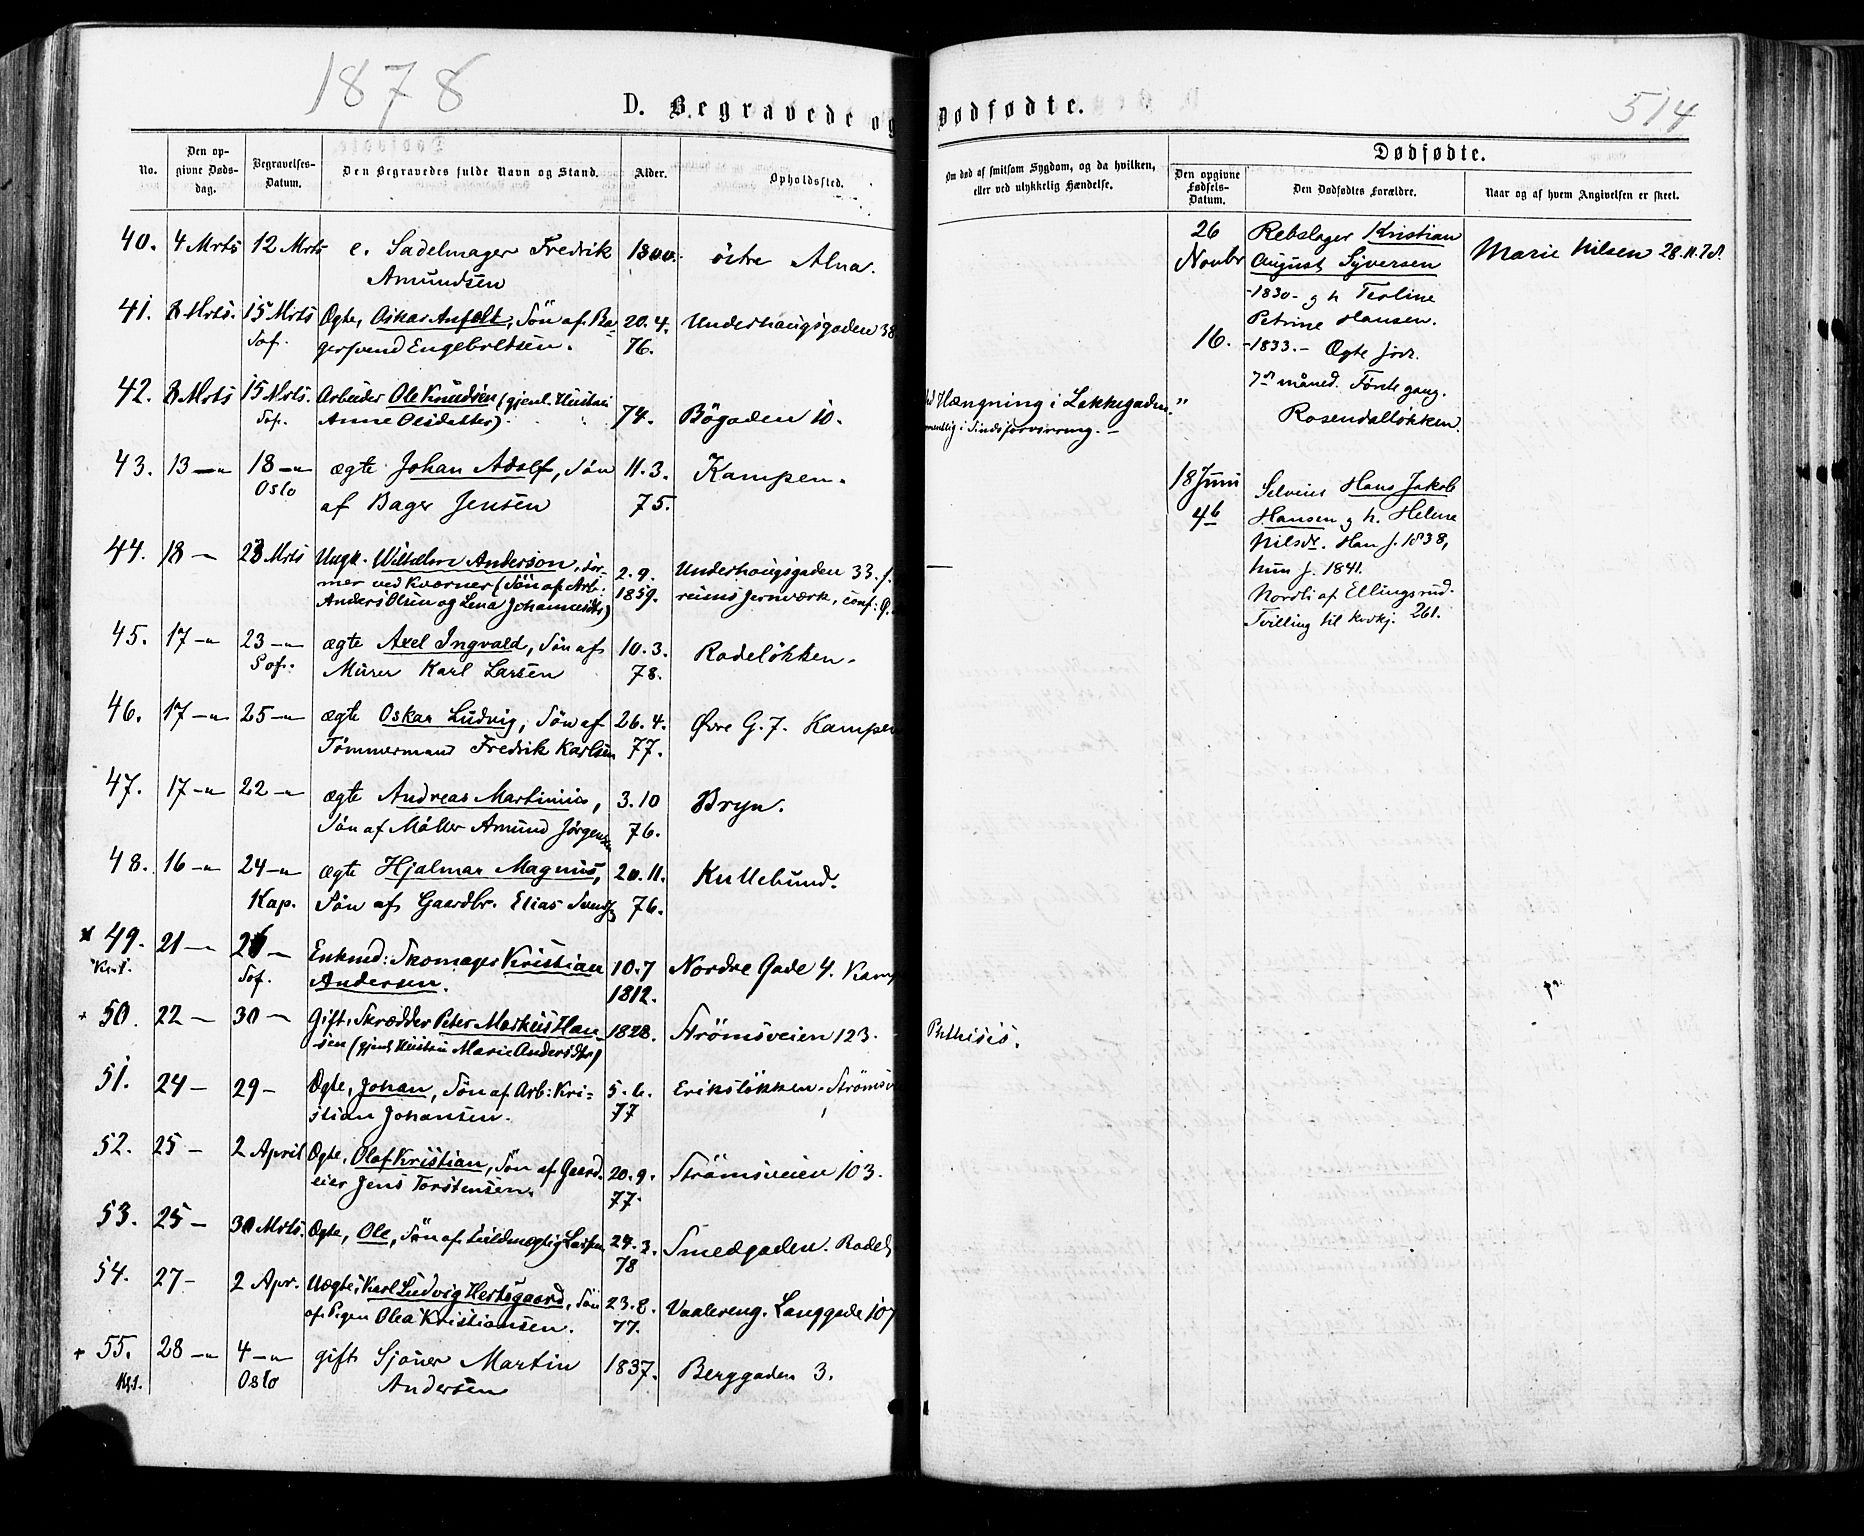 1878
514
D. Begravede og Dødfødte.
No.
Den op-
givne Døds-
dag.
Begravelses-
Datum.
Den Begravedes fulde Navn og Stand.
Alder.
Opholdssted.
Om død af smitsom Sygdom, og da hvilken,
eller ved ulykkelig Hændelse.
Dødfødte.
Den opgivne
Fødsels-
Datum.
Den Dødfødtes Forældre.
Naar og af hvem Angivelsen er skeet.
40. 4 Mrts 12 Mrts e. Sadelmager Fredrik 1800. östre Alna.
Amundsen
41. 8 Mrts. 15 Mrts Ægte, Oskar Anfelt, Sön af Ba- 20. 4. Underhaugsgaden 38
Sof. gersvend Engebretsen. 76.
42. 8 Mrts 15 Mrts. Arbeider Ole Knudsen (gjenl. Hustru
Sof. Anne Olsdatter) 74. Bögaden 10.
Hængning i Løkkegaden."
i Sindsforvirring. —
43. 13 — 18 — ægte Johan Adolf, Sön 11. 3. Kampen.
Oslo af Bager Jensen 75.
44. 18 — 23 Mrts Ungk. Wilhelm Anderson, for- 2. 9. Underhaugsgaden 33. f.
mer ved Kværner (Sön af Arb: 1859. reims Jernværk, conf:
Anders Olsen og Lena Johannesdtr)
—
45. 17 — 23 — ægte Axel Ingvald, Sön af 10. 3. Rodeløkken.
Sof. Murer Karl Larsen 78.
46. 17 — 25 — ægte Oskar Ludvig, Sön af 26. 4. Øvre G. 7. Kampen
Tømmermand Fredrik Karlsen 77.
47. 17 — 22 — ægte Andreas Martinius, 3. 10 Bryn.
Søn af Møller Amund Jørgensen 76.
48. 16 — 24 — ægte Hjalmar Magnus, 20. 11. Kullebund.
Kap. Søn af Gaardbr. Elias Svends 76.
49. 21 — 26 — Enkmd: Skomager Kristian 10. 7 Nordre Gade 4. Kamp
Krst. Sof. Andersen. 1812.
+ 50. 22 — 30 — Gift, Skrædder Peter Markus Han- 1828. Strömsveien 123. Phthisis.
sen (gjenl. Hustru Marie Andersdtr)
51. 24 — 29 — Ægte, Johan, Sön af Arb: Kri- 5. 6. Eriksløkken. Strömsv
stian Johansen. 77
52. 25 — 2 April Ægte, Olaf Kristian, Sön af Gaard- 20. 9. Strömsveien 103.
eier Jens Torstensen. 77.
53. 25 — 30 Mrts. Ægte, Ole, Sön af Larsen 24. 3. Smedgaden. Rodel
78
54. 27 — 2 Apr. Uægte, Karl Ludvig Hertsgaard, Sön 23. 8. Vaalereng. Langgade 107
af Pigen Olea Kristiansen. 77.
+ 55. 28 — 4 — gift Sjöner Martin 1837. Berggaden 3.
Krst. Oslo Andersen
26
Novbr
16.
Rebslager Kristian
August Syversen
-1830- g h Terline
Petrine Hansen.
-1833.- Ægte
7de måned. Förste gang.
Rosendalløkken.
Marie Nilsen 28.11.78.
18 Juni
46
Selveier Hans Jakob
Hansen g h. Helene
Nilsdr. Han f. 1838,
hun f. 1841.
Nordli af Ellingsrud.
Tvilling til kvkj. 261.